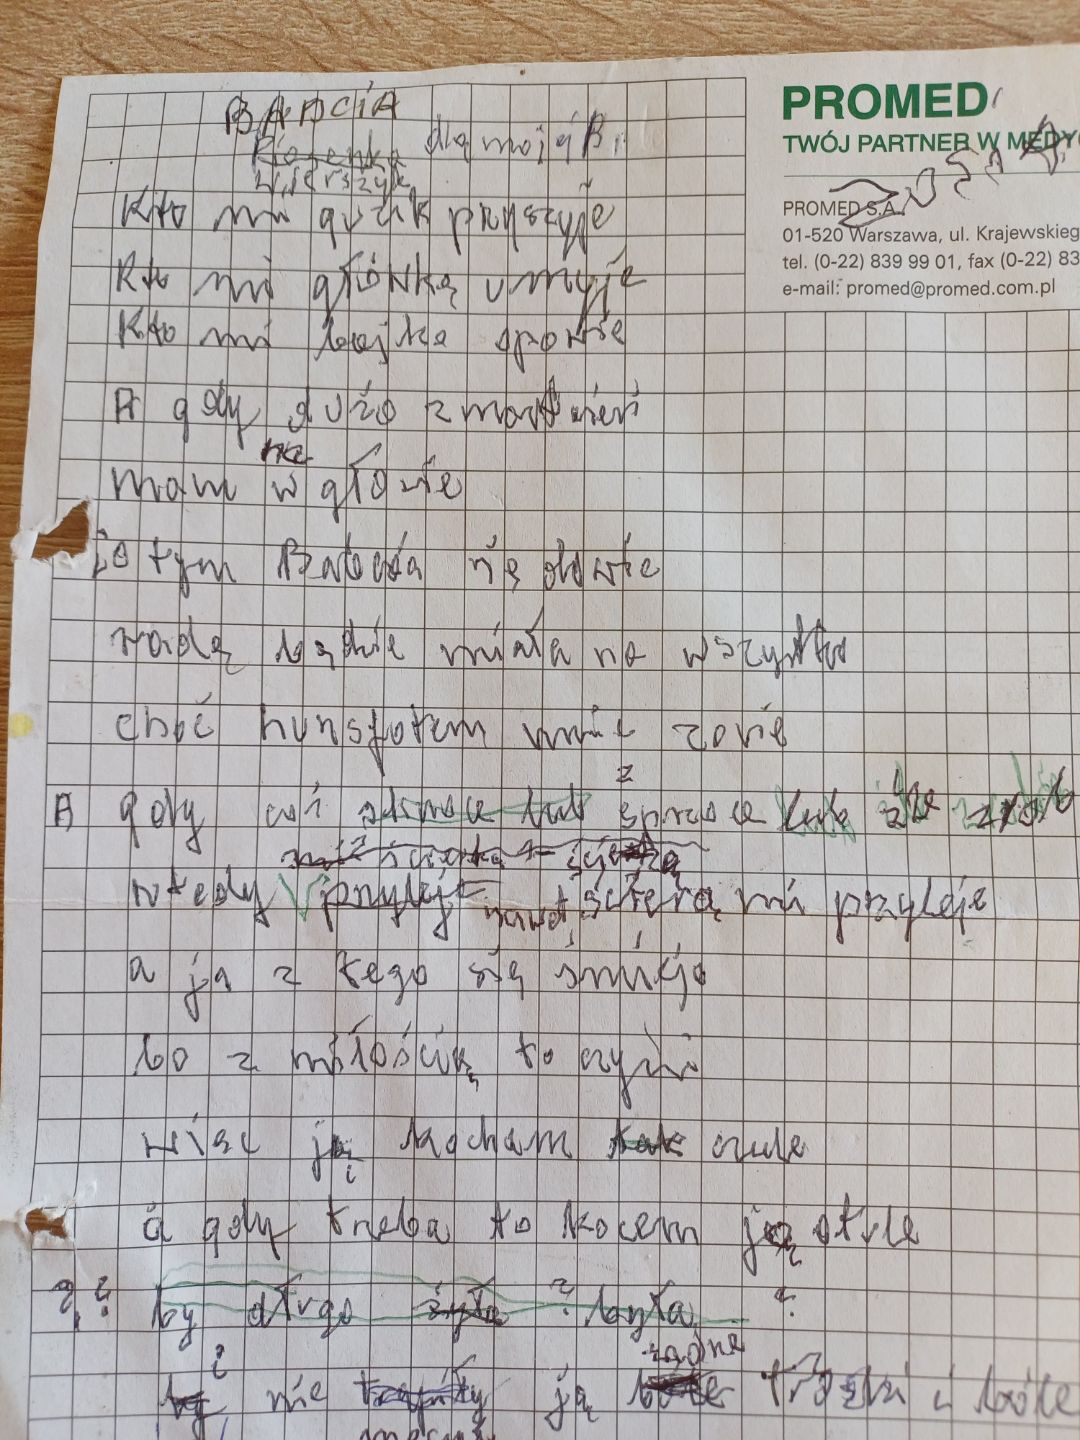 BABCIA
Piosenka dla mojej B.
wierszyk
PROMED
TWÓJ PARTNER W MEDY
PROMED S.A.
01-520 Warszawa, ul. Krajewskieg
tel. (0-22) 839 99 01, fax (0-22) 83
e-mail: promed@promed.com.pl
Kto mi guzik przyszyje
Kto mi główkę umyje
Kto mi bajkę opowie
A gdy dużo zmartwień
na
mam w głowie
to tym Babcia się dowie
radę będzie miała na wszystko
choć hunsfotem mnie zowie
A gdy coś
wtedy nawet ścierą mi przyleje
a ja z tego się śmieję
bo z miłością to czyni
więc ją kocham tak czule
a gdy trzeba to kocem ją otule
by długo żyła ? była
żadne
by nie ją troski i bóle